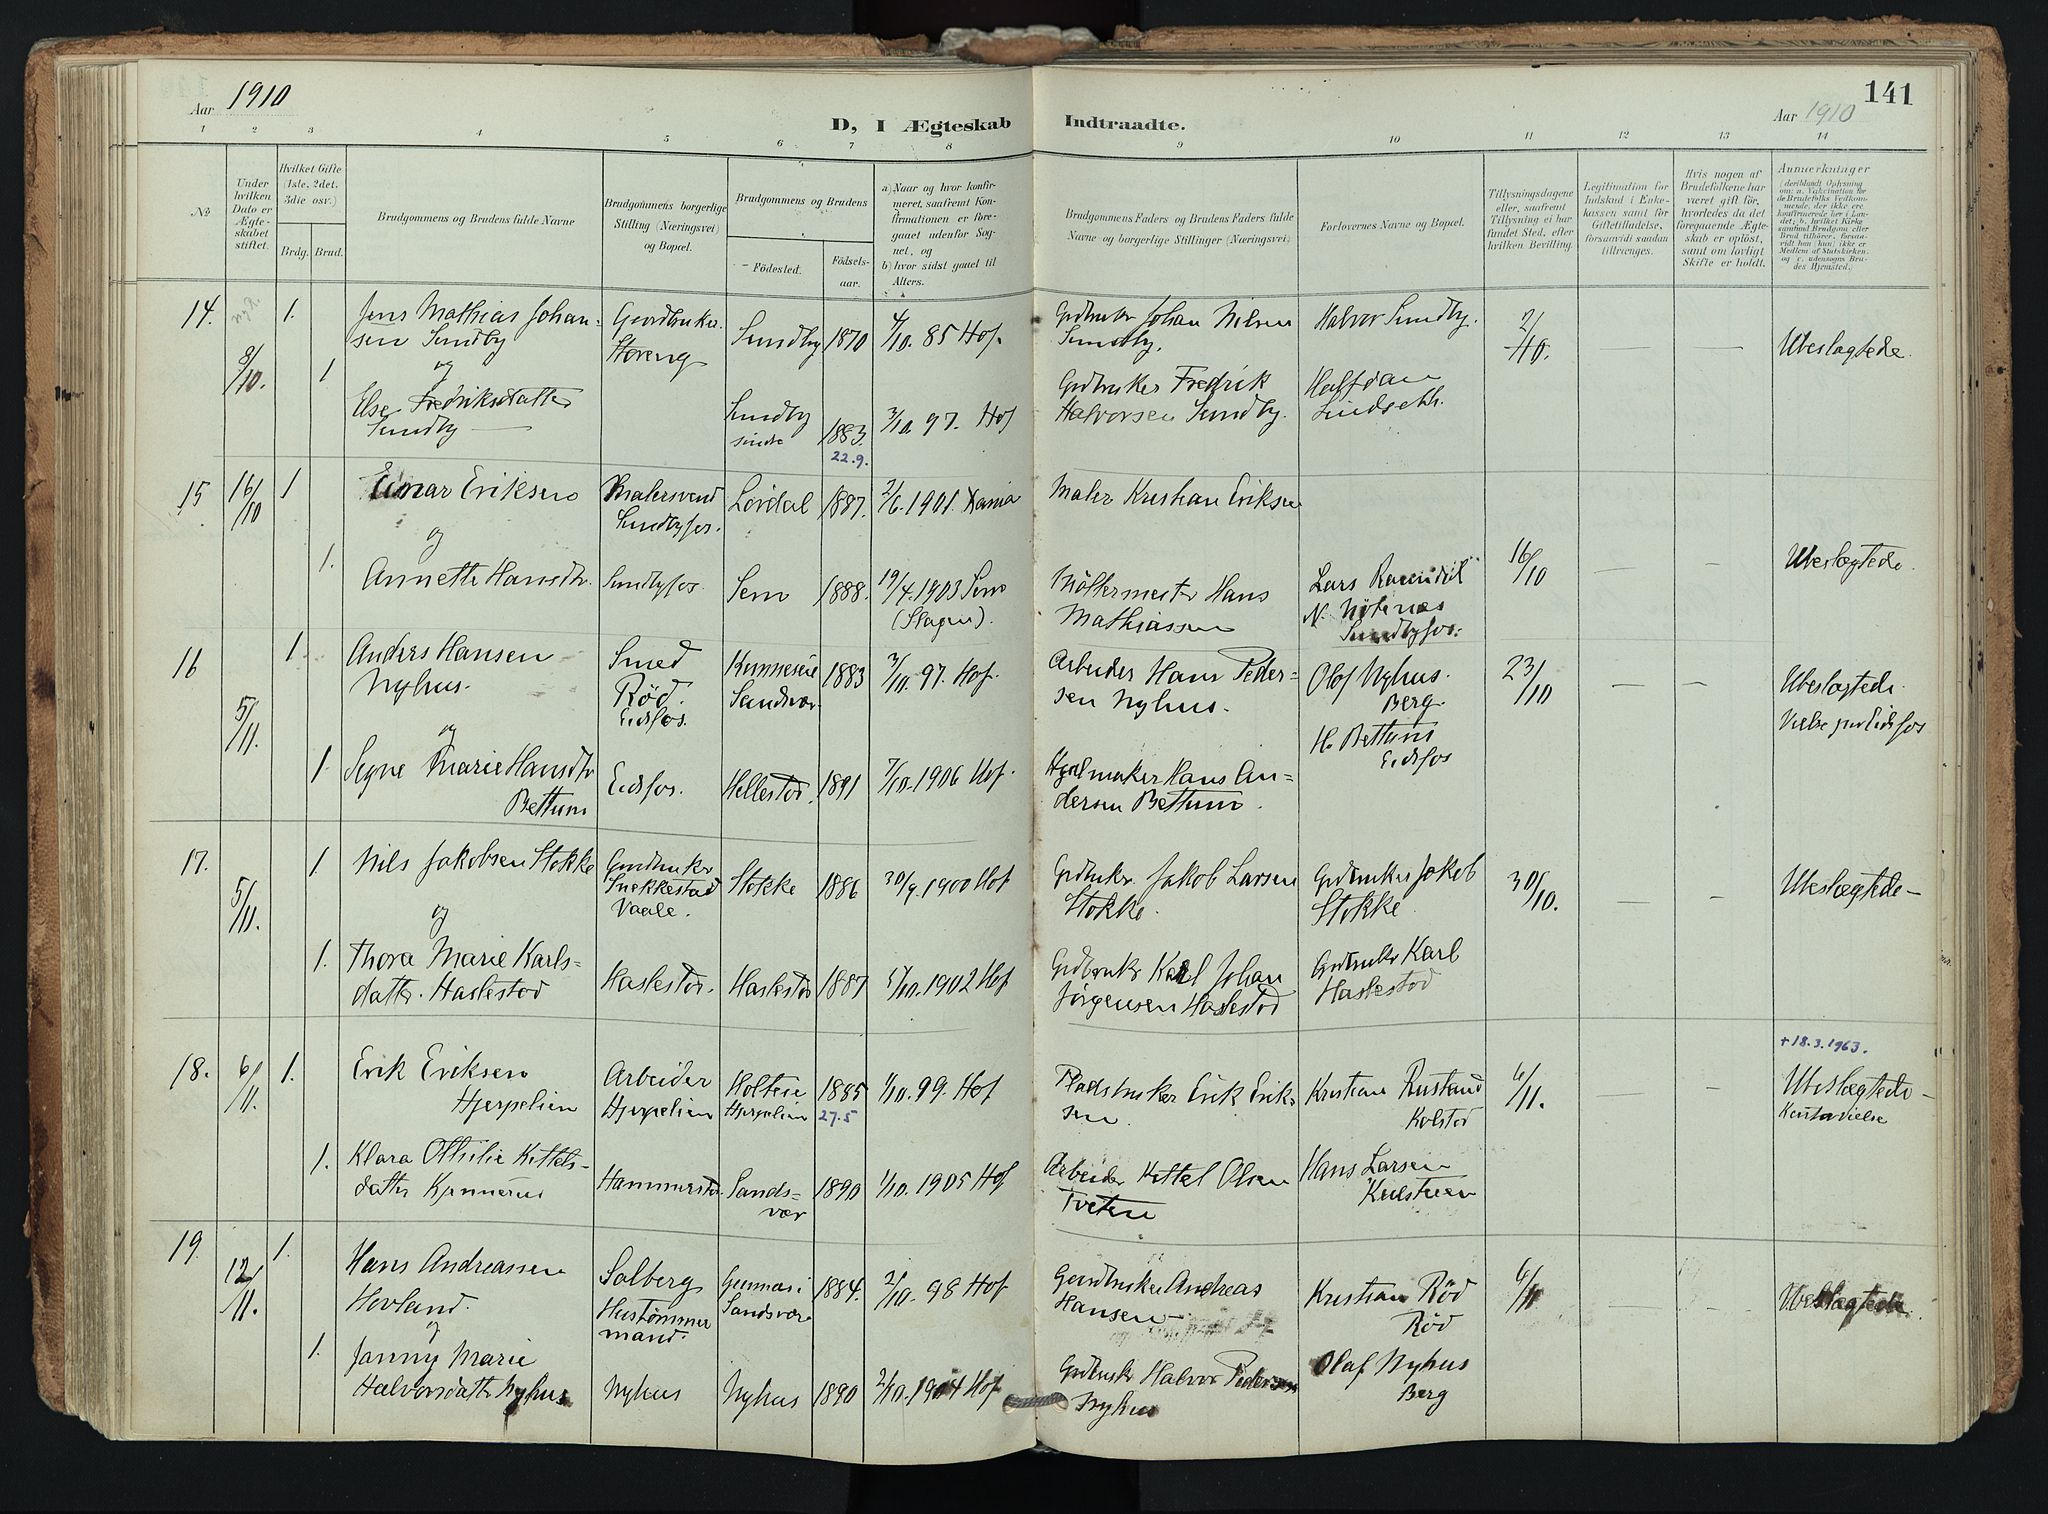 141
Aar 1910
D, I Ægteskab Indtraadte.
Aar 1910
1 2 3 4 5 6 7 8 9 10 11 12 13 14
№
Under hvilken Dato er Ægteskabet stiftet.
Hvilket Gifte (1ste, 2det, 3die osv.)
Brdg. Brud.
Brudgommens og Brudens fulde Navne
Brudgommens borgerlige Stilling (Næringsvei) og Bopæl.
Brudgommens og Brudens
Födested.
Födselsaar.
a) Naar og hvor konfirmeret, saafremt Konfirmationen er foregaaet udenfor Sognet, og
b) hvor sidst gaaet til Alters.
Brudgommens Faders og Brudens Faders fulde Navne og borgerlige Stillinger (Næringsvei)
Forlovernes Navne og Bopæl.
Tillysningsdagene eller, saafremt Tillysning ei har fundet Sted, efter hvilken Bevilling.
Legitimation for Indskud i Enkekassen samt for Giftetilladelse, forsaavidt saadan tiltrænges.
Hvis nogen af Brudefolkene har været gift før, hvorledes da det foregaaende Ægteskab er oplöst, samt om lovligt Skifte er holdt.
Anmærkninger
(deriblandt Oplysning om: a. Vakcination for de Brudefolks Vedkommende, der ikke ere konfirmerede her i Landet; b. hvilket Kirkesamfund Brudgom eller Brud tilhörer, forsaavidt han (hun) ikke er Medlem af Statskirken, og c. udensogns Brudes Hjemsted.)
14.
8/10.
1.
Jens Mathias Johansen Sundby
Gaardbruker. Storeng
Sundby
1870
4/10. 85 Hof.
Grdbruker Johan Nilsen Sundby.
Halvor Sundby.
2/10.
Ubeslægtede.
og
1
Else Fredriksdatter Sundby
Sundby søndre
1883.
22.9.
3/10. 97. Hof
Grdbruker Fredrik Halvorsen Sundby.
Halfdan Lindseth.
15
16/10
1
Einar Eriksen
Malersvend Sundbyfos.
Lördal
1887.
2/6. 1901. Xania
Maler Kristian Eriksen
og
1.
Annette Hansdtr.
Sundbyfos.
Sem
1888.
19/4. 1903 Sem (Slagen).
Möllermester Hans Mathiassen
Lars
N.
Sundbyfos.
16/10
Ubeslægtede.
16
5/11.
1
Anders Hansen Nyhus.
Smed Röd. Eidsfos.
Sandsvær.
1883
3/10. 97. Hof.
Arbeider Hans Pedersen Nyhus.
Olof Nyhus. Berg.
23/10
Ubeslægtede.
Vielse paa Eidsfos
og
1.
Signe Marie Hansdtr Bettum
Eidsfos.
Hillestad.
1891
7/10. 1906 Hof.
Hjulmaker Hans Andersen Bettum.
H. Bettum Eidsfos
17.
5/11.
1.
Nils Jakobsen Stokke
Gaardbruker Snekkestad Vaale.
Stokke
1886
30/9. 1900 Hof
Grdbruker. Jakob Larsen Stokke.
Grdbruker Jakob Stokke.
30/10.
Ubeslægtede
og
1.
Thora Marie Karlsdatter. Haslestad
Haslestad.
Haslestad
1887
5/10. 1902 Hof
Grdbruker Karl Johan Jörgensen Haslestad
Grdbruker Karl Haslestad
18.
6/11.
1.
Erik Eriksen Hjerpelien
Arbeider Hjerpelien
Holteie Hjerpelien
1885
27.5
1/10. 99. Hof
Pladsbruker Erik Eriksen.
Kristian Rustand Kolstad
6/11.
+ 18.3.1963.
Ubeslægtede
1.
Klara Othilie Kittelsdatter Kjennerud
Hammerstad.
Sandsvær
1890
1/10. 1905 Hof
Arbeider Kittel Olsen Tveten
Hans Larsen
19.
12/11.
1.
Hans Andreassen Hovland.
Solberg Hustømmermand.
Sandsvær.
1884.
2/10. 98 Hof
Gaardbruker Andreas Hansen
Kristian Röd Röd
6/11
Ubeslægtede.
og
1.
Janny Marie Halvorsdatter Nyhus
Nyhus
Nyhus
1890
2/10. 1904 Hof.
Grdbruker Halvor Pedersen Nyhus
Olaf Nyhus Berg